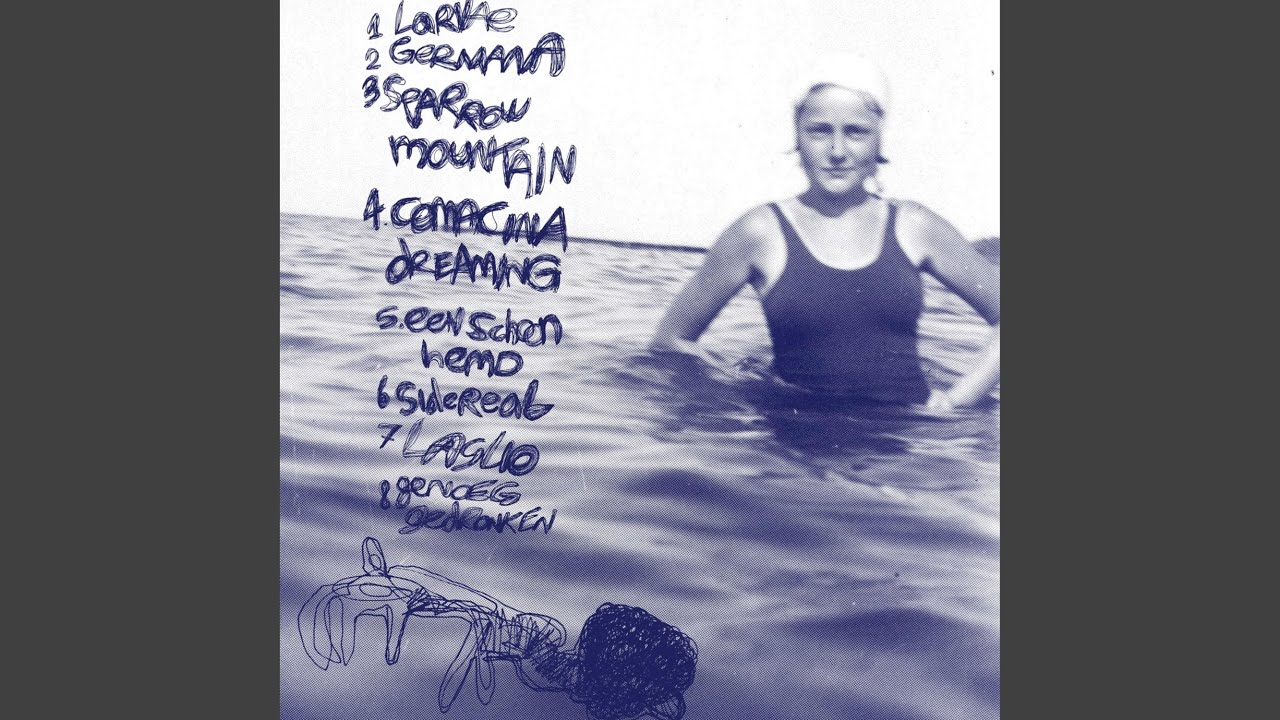 1 Larvae
2 GERMANA
3 SPARROW
MOUNTAIN
4. COMACINA
DREAMING
5. een schoon
hemd
6 Sidereal
7 LAGLIO
8 genoeg
gedronken